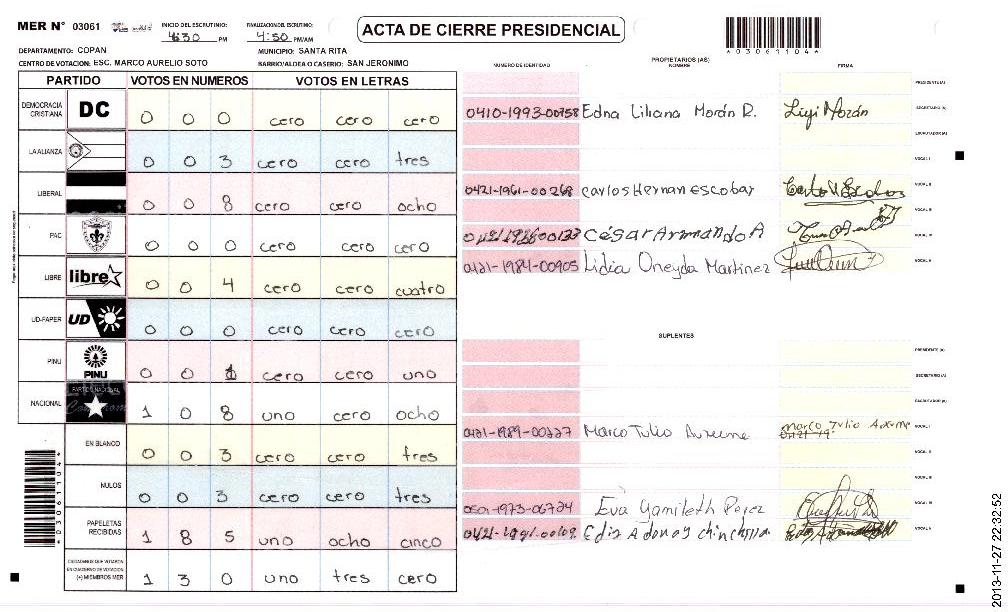 MER N° 03061
INICIO DEL ESCRUTINIO:
4:30 PM
FINALIZACION DEL ESCRUTINIO:
4:50 PM/AM
ACTA DE CIERRE PRESIDENCIAL
*03061104*
DEPARTAMENTO: COPAN
MUNICIPIO: SANTA RITA
CENTRO DE VOTACION: ESC. MARCO AURELIO SOTO
BARRIO/ALDEA O CASERIO: SAN JERONIMO
PARTIDO VOTOS EN NUMEROS VOTOS EN LETRAS
DEMOCRACIA CRISTIANA DC 0 0 0 cero cero cero
LA ALIANZA 0 0 3 cero cero tres
LIBERAL 0 0 8 cero cero ocho
PAC 0 0 0 cero cero cero
LIBRE libre 0 0 4 cero cero cuatro
UD-FAPER UD 0 0 0 cero cero cero
PINU PINU 0 0 1 cero cero uno
NACIONAL PARTIDO NACIONAL 1 0 8 uno cero ocho
EN BLANCO 0 0 3 cero cero tres
NULOS 0 0 3 cero cero tres
PAPELETAS RECIBIDAS 1 8 5 uno ocho cinco
CIUDADANOS QUE VOTARON EN CUADERNO DE VOTACION (+) MIEMBROS MER 1 3 0 uno tres cero
*03061104*
PROPIETARIOS (AS)
NUMERO DE IDENTIDAD NOMBRE FIRMA
PRESIDENTE (A)
0410-1993-00758 Edna Liliana Morán R. Ligi Morán SECRETARIO (A)
ESCRUTADOR (A)
VOCAL I
0421-1961-00268 Carlos Hernan Escobar VOCAL II
VOCAL III
César Armando A VOCAL IV
0421-1984-00905 Lidia Oneyda Martinez VOCAL V
SUPLENTES
PRESIDENTE (A)
SECRETARIO (A)
ESCRUTADOR (A)
0421-1989-00227 Marco Tulio marco Tulio VOCAL I
VOCAL II
VOCAL III
0501-1973-06724 Eva Yamileth Perez VOCAL IV
Edis Adonay chinchilla VOCAL V
2013-11-27 22:32:52